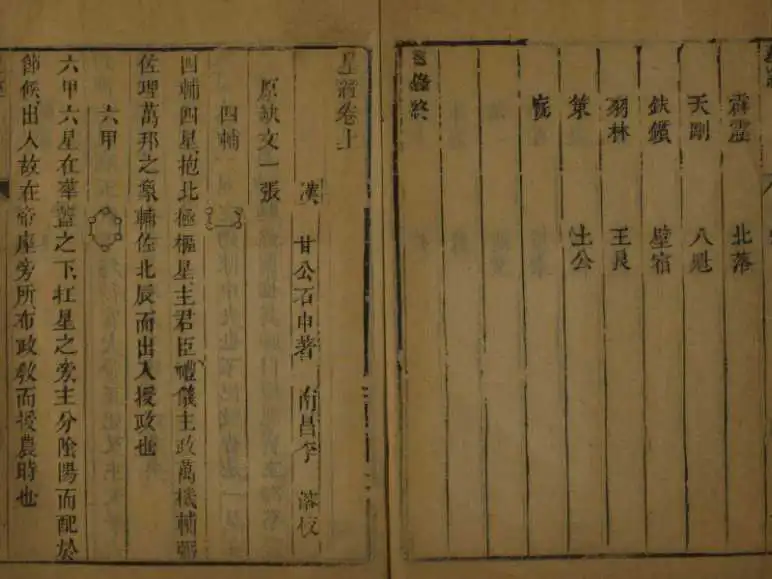 霹靂 北落
天剛 八魁
鈇鑕 壁宿
羽林 王良
策 土公
目錄終
星經卷上
漢 甘公石申著 南昌李 校
原缺文一張
四輔
四輔四星抱北極樞星主君臣禮儀主政萬機輔弼
佐理萬邦之象輔佐北辰而出入授政也
六甲
六甲六星在華蓋之下杠星之旁主分陰陽而配於
節候出入故在帝座旁所布政教而授農時也